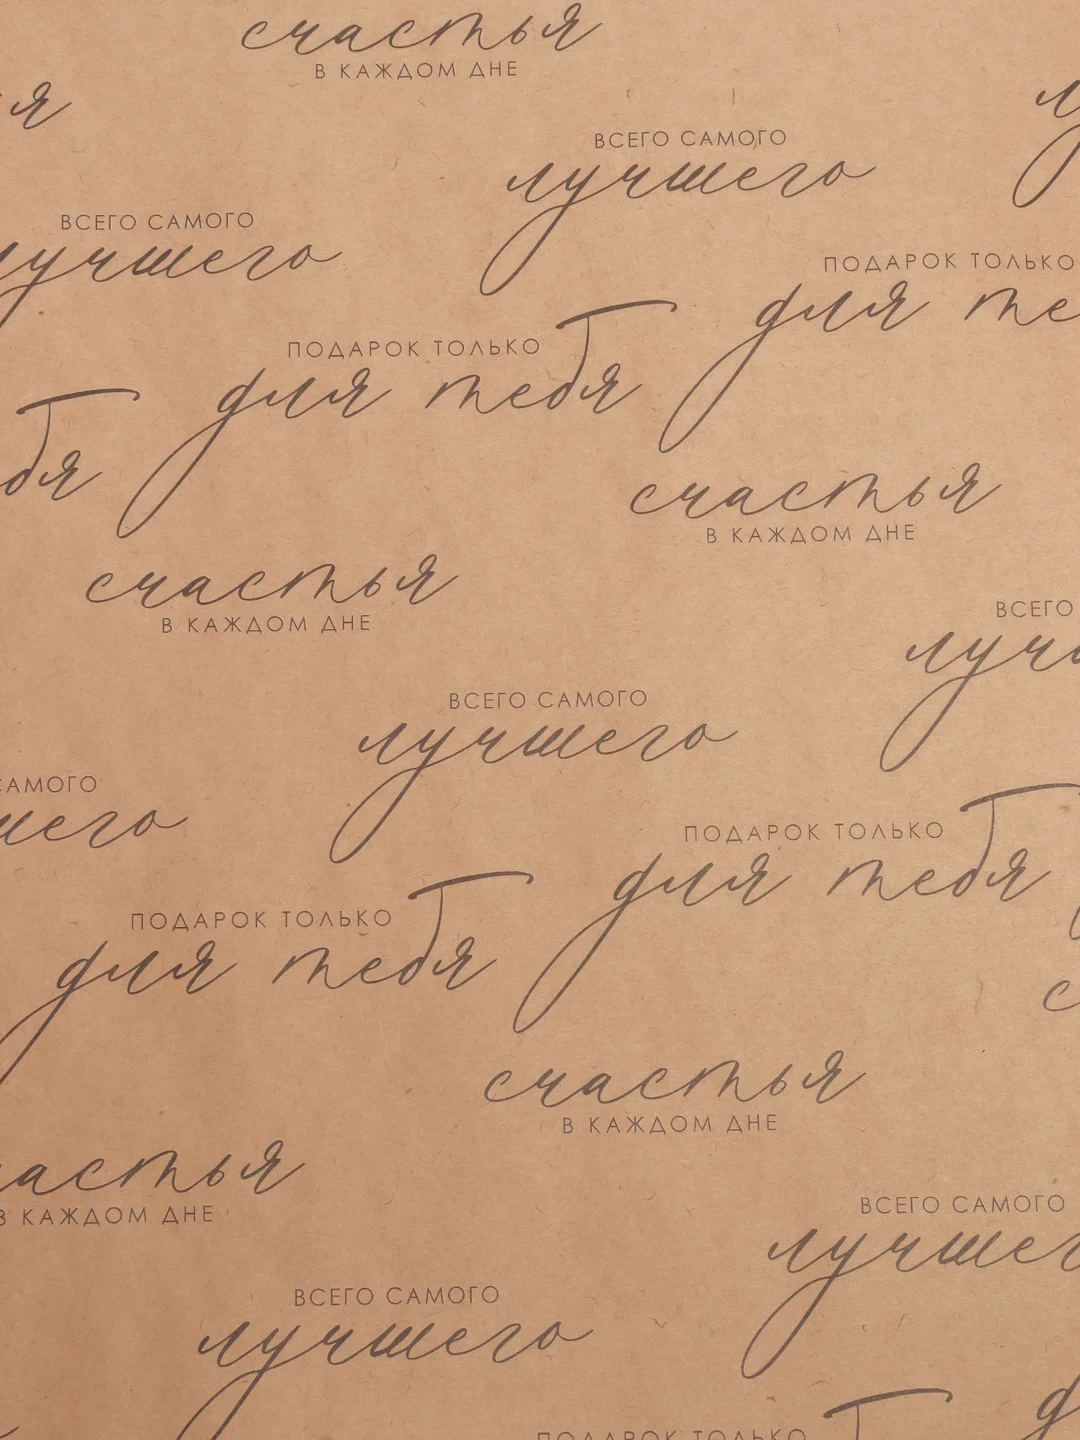 счастья
В КАЖДОМ ДНЕ
ВСЕГО САМОГО
лучшего
ВСЕГО САМОГО
лучшего
ПОДАРОК ТОЛЬКО
для те
ПОДАРОК ТОЛЬКО
для тебя
бя
счастья
В КАЖДОМ ДНЕ
счастья
В КАЖДОМ ДНЕ
ВСЕГО
лучш
ВСЕГО САМОГО
лучшего
САМОГО
шего
ПОДАРОК ТОЛЬКО
для тебя
ПОДАРОК ТОЛЬКО
для тебя
счастья
В КАЖДОМ ДНЕ
частья
В КАЖДОМ ДНЕ
ВСЕГО САМОГО
лучшег
ВСЕГО САМОГО
лучшего
ПОДАРОК ТОЛЬКО